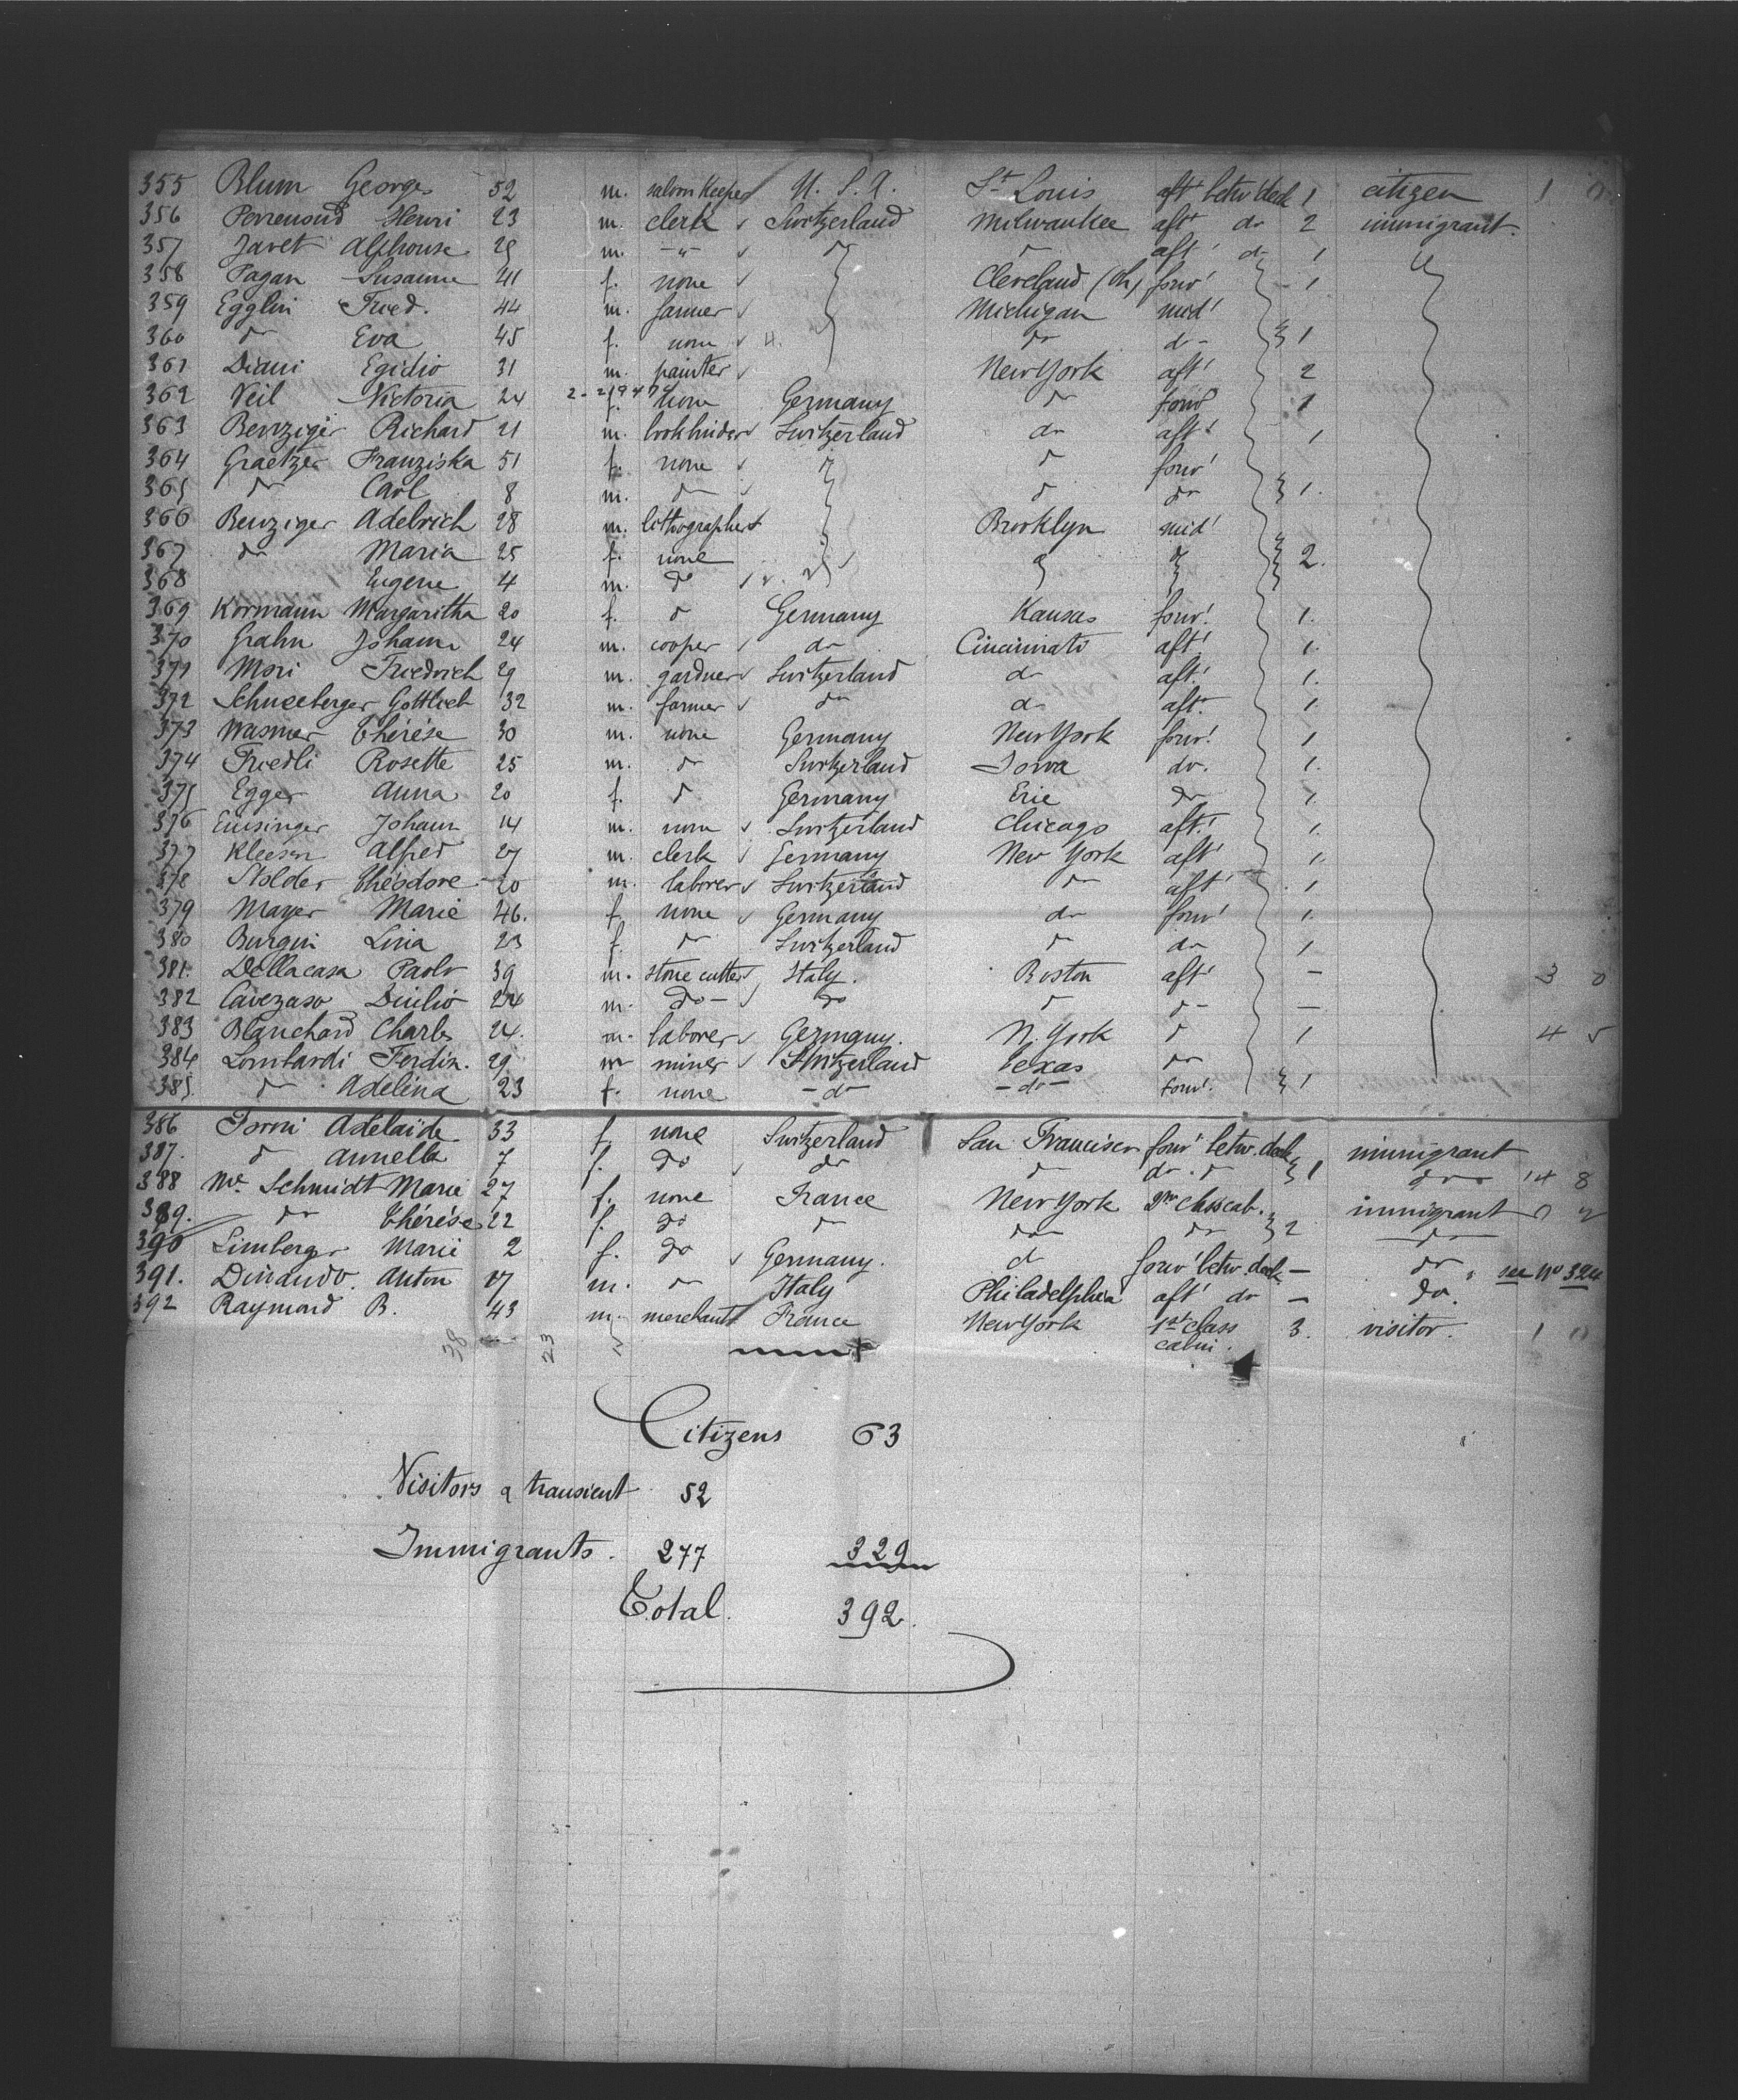 355 Blum Georges 52 m. saloon Keeper U. S. A. St Louis aft betw. deck 1 citizen 1 0
356 Perrenoud Henri 23 m. clerk Switzerland Milwaukee aft do 2 immigrant.
357 Javet Alphonse 25 m. -"- do do aft do 1
358 Pagan Susanne 41 f. none Cleveland (Oh) forw 1
359 Egglin Fried. 44 m. farmer Michigan mid
360 do Eva 45 f. none do do - 1
361 Diani Egidio 31 m. painter New York aft 2
362 Veil Victoria 24 f. none Germany do forw 1
363 Benziger Richard 21 m. bookbinder Switzerland do aft 1
364 Graetzer Franziska 51 f. none do do forw
365 do Carl 8 m. do do do 1.
366 Benziger Adelrich 28 m. lithographer Brooklyn mid
367 do Maria 25 f. none 2.
368 Eugene 4 m. do
369 Kormann Margaritha 20 f. do Germany Kansas forw. 1.
370 Grahn Johann 24 m. cooper do Cincinnati aft. 1.
371 Mori Friedrich 29 m. gardner Switzerland do aft. 1.
372 Schneeberger Gottlieb 32 m. farmer do do aft. 1.
373 Wasmer Thérèse 30 m. none Germany New York forw. 1
374 Friedli Rosette 25 m. do Switzerland Iowa do. 1.
375 Egger Anna 20 f. do Germany Erie do 1.
376 Johann 14 m. none Switzerland Chicago aft. 1.
377 Alfred 27 m. clerk Germany New York aft 1.
378 Stolder Théodore 20 m. laborer Switzerland do aft 1
379 Mayer Marie 46. f. none Germany do forw 1.
380 Burgin Lina 23 f. do Switzerland do do 1
381. Dellacasa Paolo 39 m. stone cutter Italy. Boston aft - 3 0
382 Cavezaso Duilio 24 m. do - do do do - -
383 Blanchard Charles 24. m. laborer Germany. N. York do 1 4 5
384 Lombardi Ferdin. 29 m miner Switzerland Texas do
385. do Adelina 23 f. none - do - do - forw. 1
386 Adelaide 33 f. none Switzerland San Francisco forw betw. deck immigrant
387. do Annella 7 f. do do do do. do 1 do 14 8
388 Me. Schmidt Marie 27 f. none France New York 2nd class cab. immigrant
389. do Thérèse 22 f. do do do do 2 do
390 Limberger Marie 2 f. do Germany. do forw betw. deck - do see No 324
391. Dinando. Anton 17 m. do Italy Philadelphia aft do - do.
392 Raymond B. 43 m. merchant France New York 1st class cabin. 3. visitor. 1 0
38 23
Citizens 63
Visitors & transient 52
Immigrants. 277 329
Total. 392.